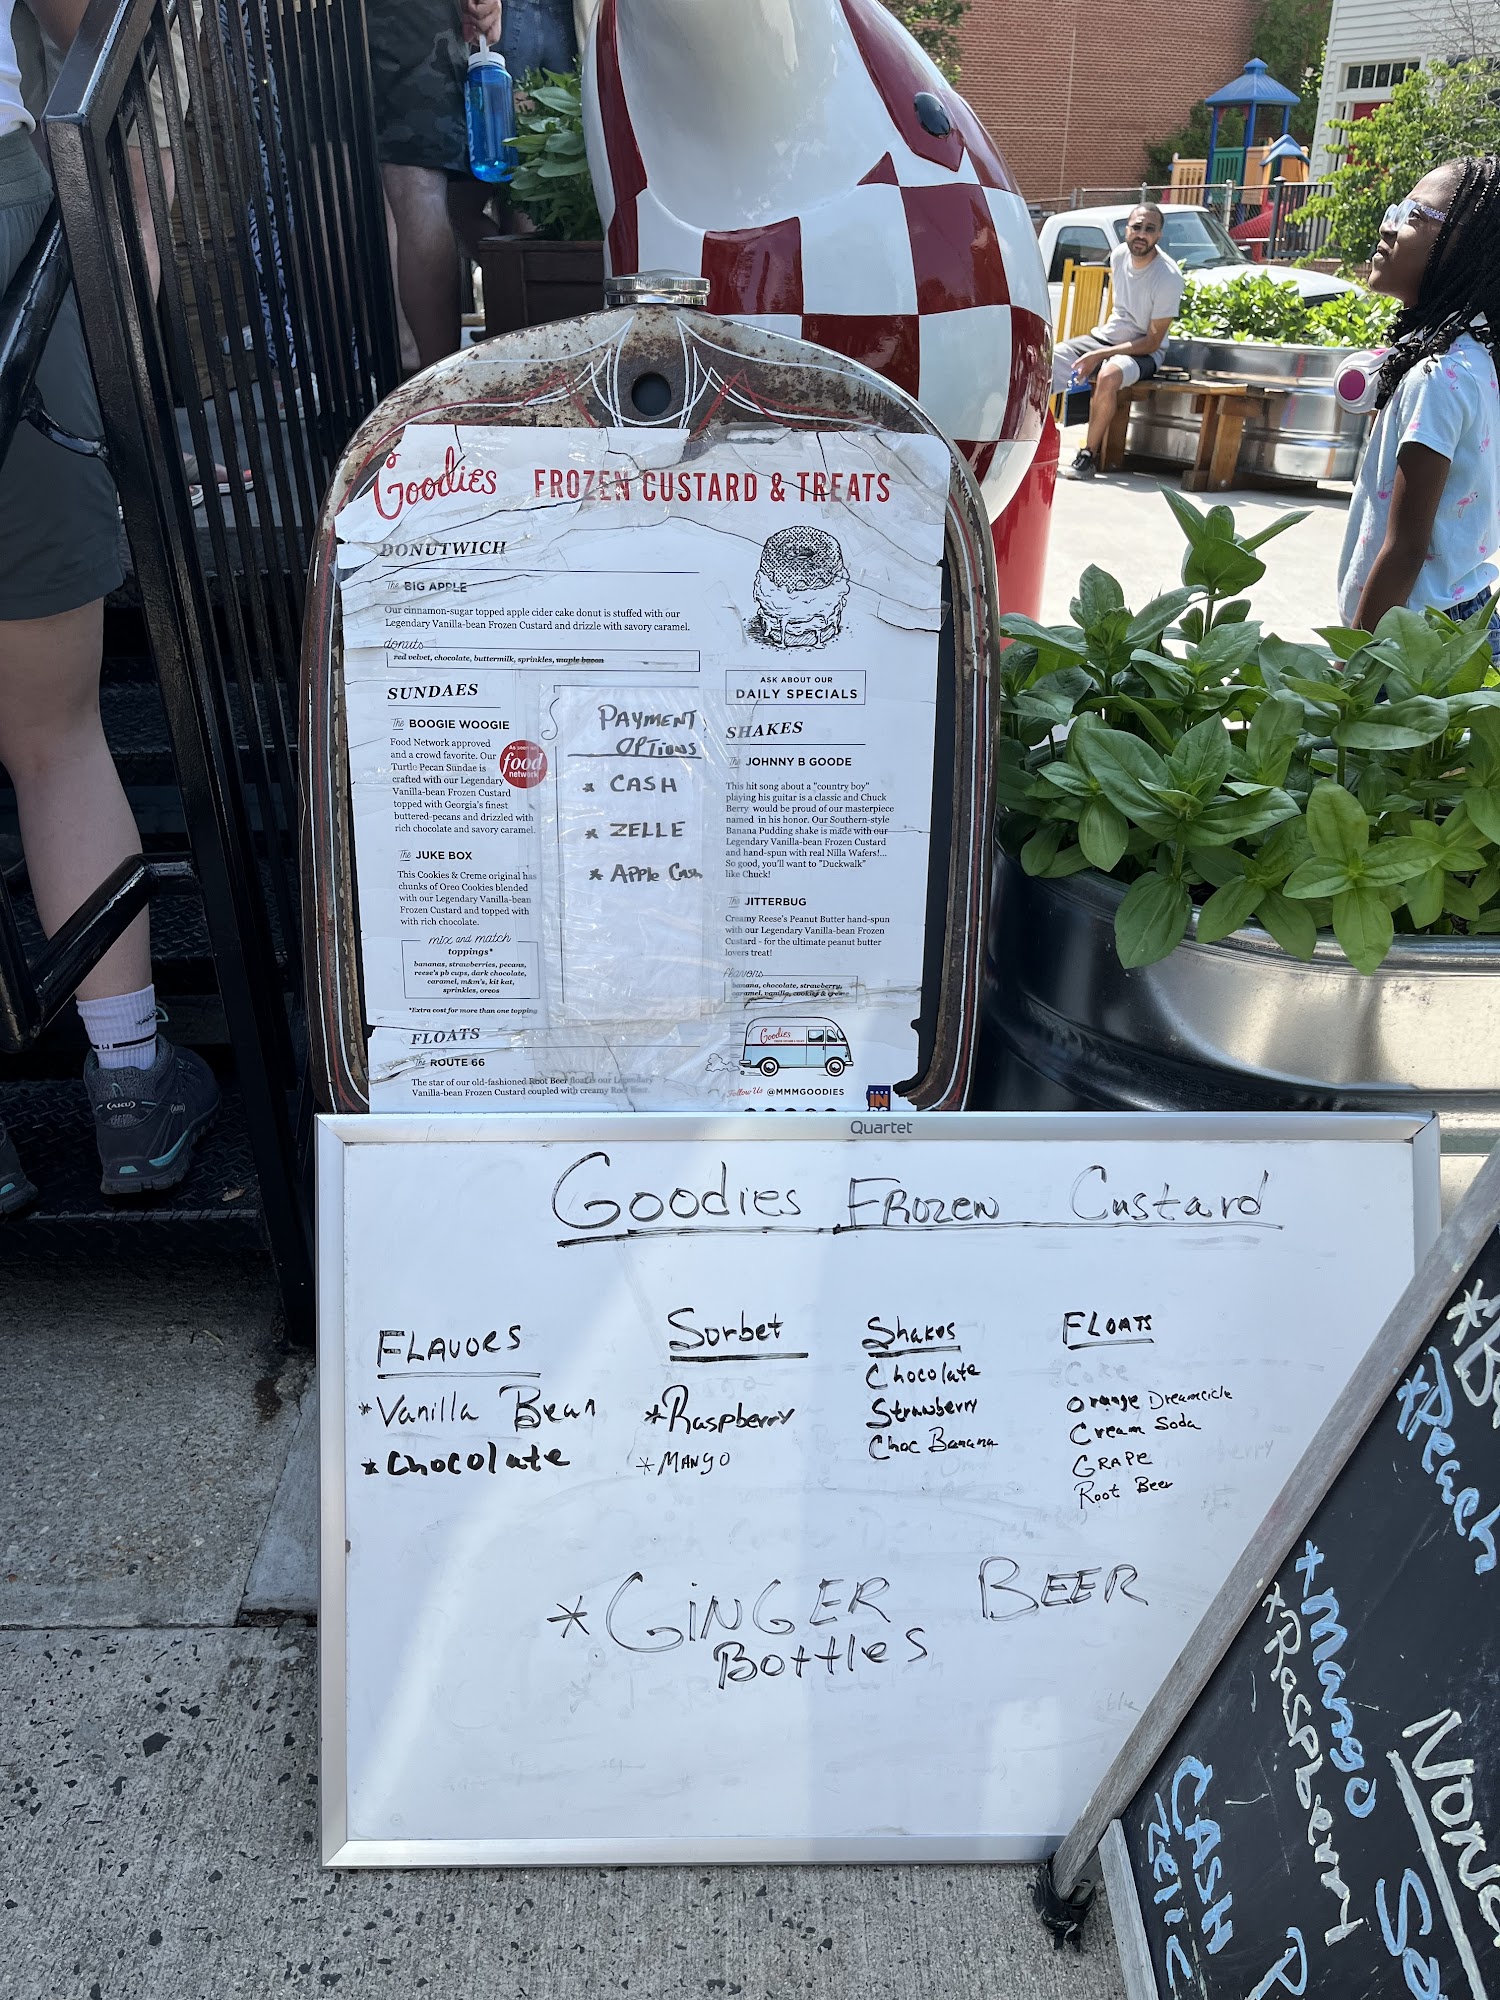 Goodies FROZEN CUSTARD & TREATS
DONUTWICH
The BIG APPLE
Our cinnamon-sugar topped apple cider cake donut is stuffed with our
Legendary Vanilla-bean Frozen Custard and drizzle with savory caramel.
donuts
red velvet, chocolate, buttermilk, sprinkles, maple bacon
SUNDAES
The BOOGIE WOOGIE
Food Network approved
and a crowd favorite. Our
Turtle Pecan Sundae is
crafted with our Legendary
Vanilla-bean Frozen Custard
topped with Georgia's finest
buttered-pecans and drizzled with
rich chocolate and savory caramel.
As seen on
food
network
The JUKE BOX
This Cookies & Creme original has
chunks of Oreo Cookies blended
with our Legendary Vanilla-bean
Frozen Custard and topped with
with rich chocolate.
mix and match
toppings*
bananas, strawberries, pecans,
reese's pb cups, dark chocolate,
caramel, m&m's, kit kat,
sprinkles, oreos
*Extra cost for more than one topping
FLOATS
The ROUTE 66
The star of our old-fashioned Root Beer float is our Legendary
Vanilla-bean Frozen Custard coupled with creamy Root Beer.
PAYMENT
OPTIONS
* CASH
* ZELLE
* APPle Cash
ASK ABOUT OUR
DAILY SPECIALS
SHAKES
The JOHNNY B GOODE
This hit song about a "country boy"
playing his guitar is a classic and Chuck
Berry would be proud of our masterpiece
named in his honor. Our Southern-style
Banana Pudding shake is made with our
Legendary Vanilla-bean Frozen Custard
and hand-spun with real Nilla Wafers!...
So good, you'll want to "Duckwalk"
like Chuck!
The JITTERBUG
Creamy Reese's Peanut Butter hand-spun
with our Legendary Vanilla-bean Frozen
Custard - for the ultimate peanut butter
lovers treat!
flavors
banana, chocolate, strawberry,
caramel, vanilla, cookies & creme
Goodies
Follow Us @MMMGOODIES
MADE
IN
Quartet
Goodies FROZEN Custard
FLAVORS
*Vanilla Bean
*Chocolate
Sorbet
*Raspberry
*MANGO
Shakes
Chocolate
Strawberry
Choc Banana
FLOATS
Coke
Orange Dreamcicle
Cream Soda
GRAPE
Root Beer
*GiNGER BEER
Bottles
*Peach
*Mango
*Raspberry
CASH
Zelle